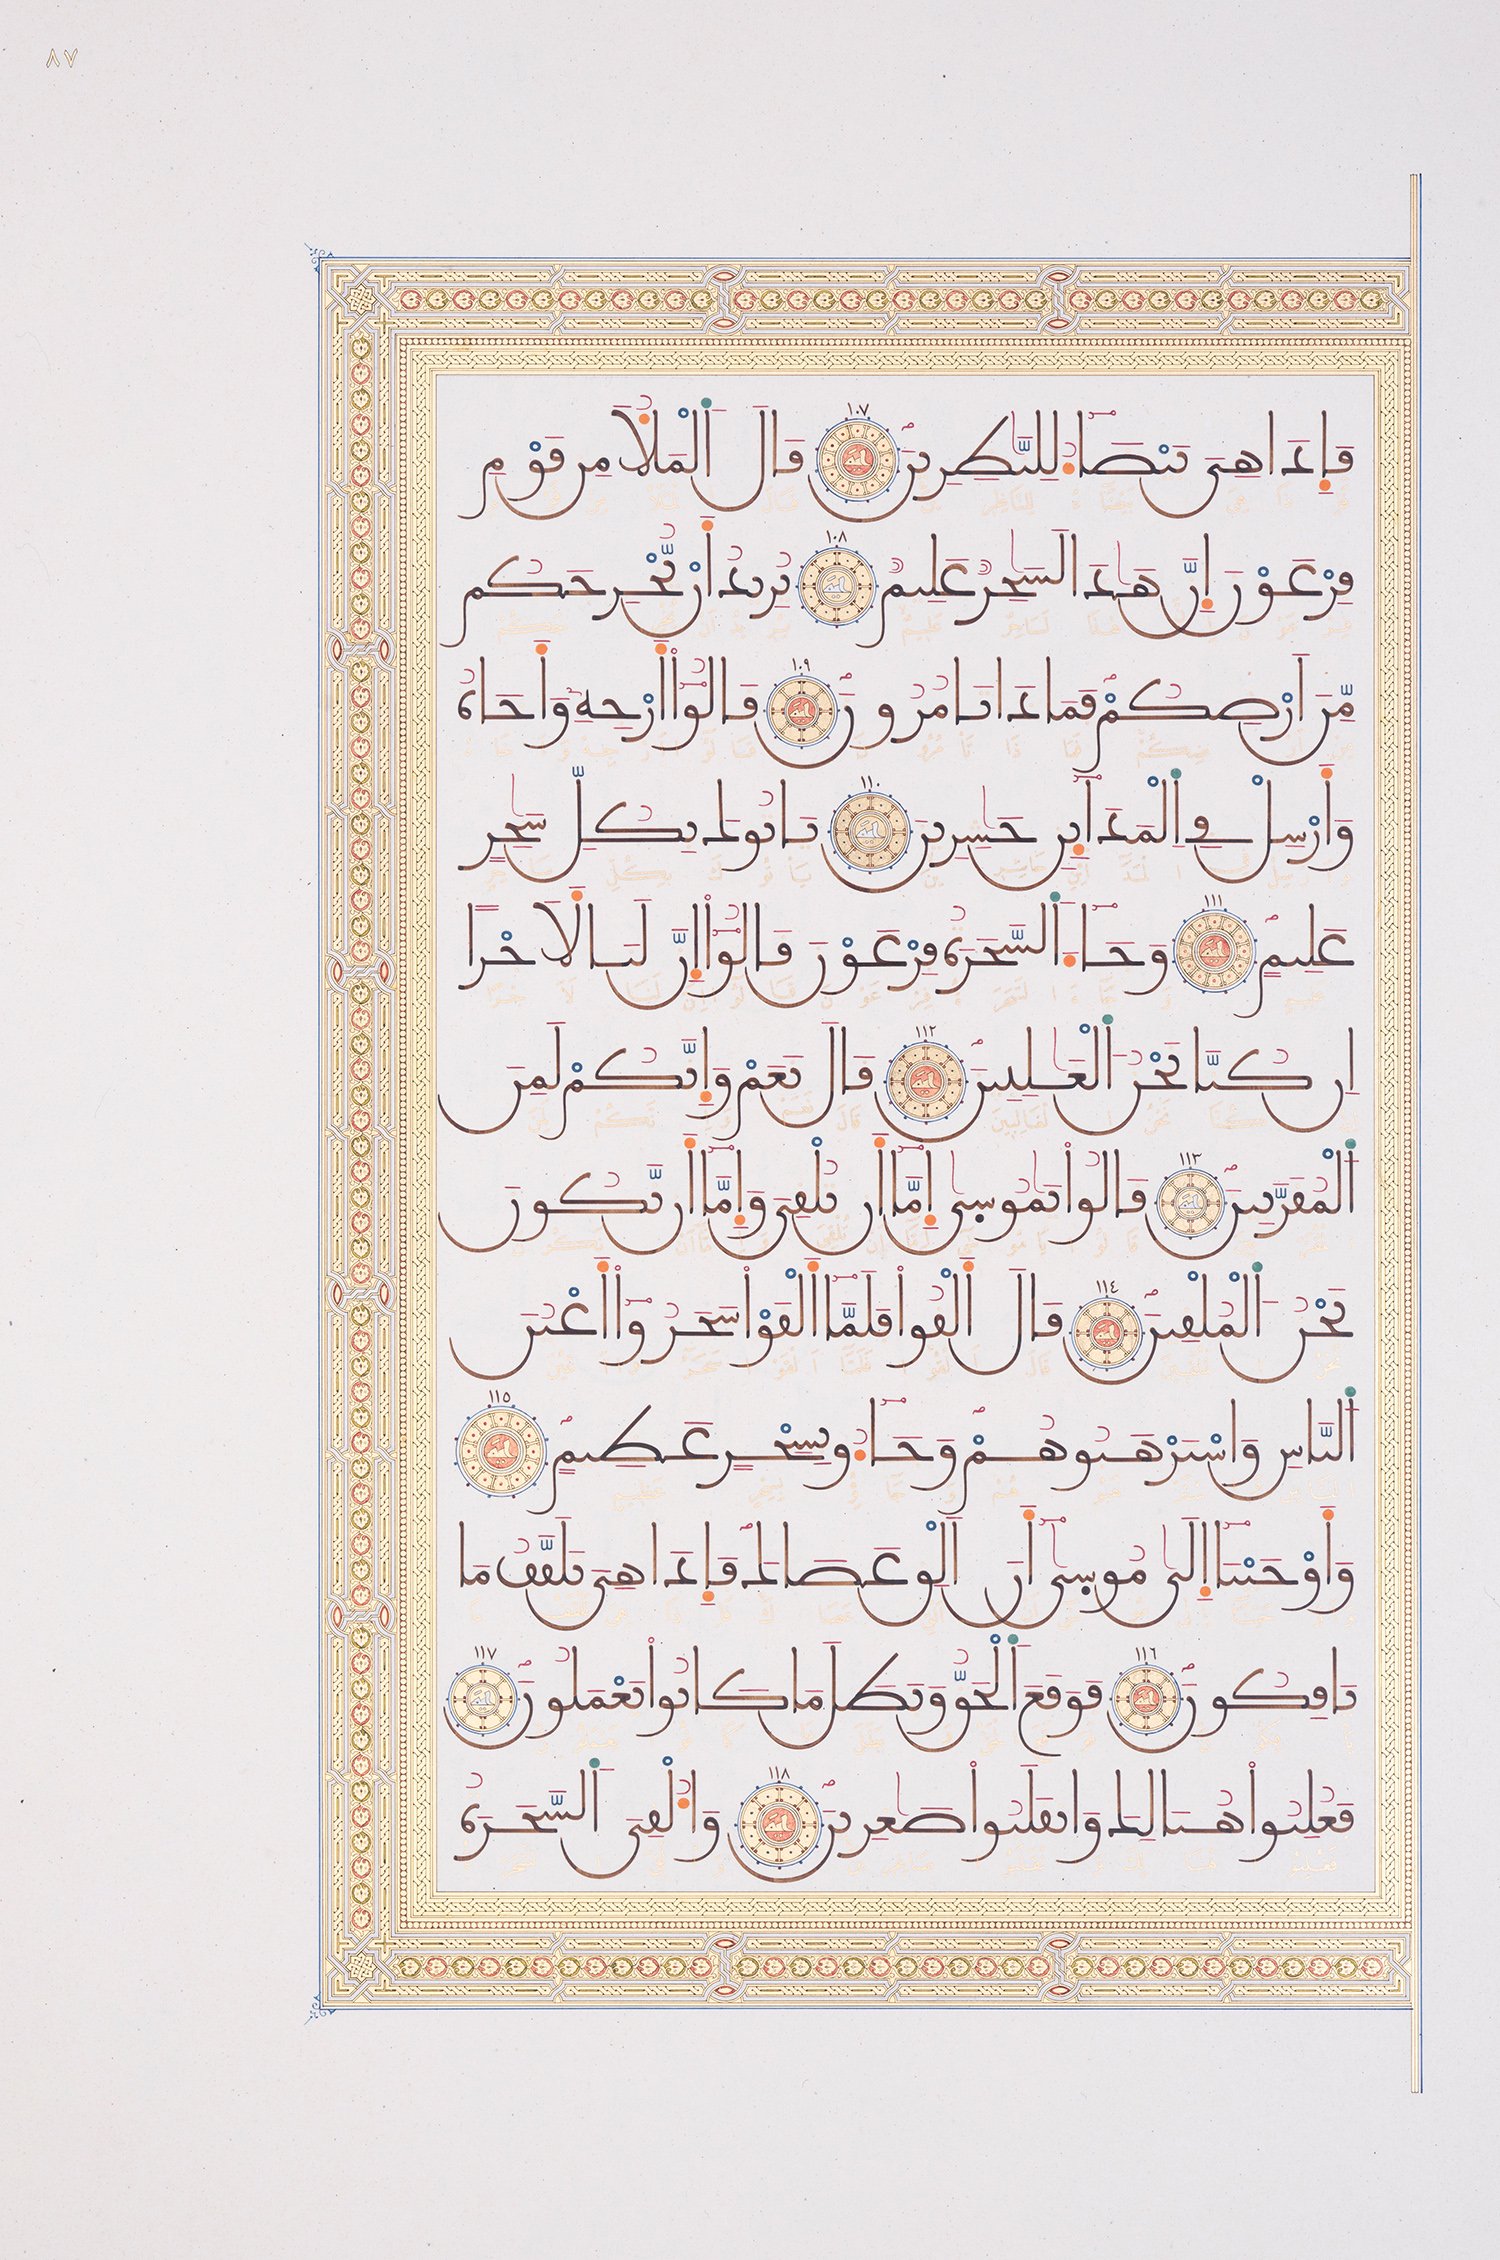 ٨٧
فَإِذَا هِىَ بَيْضَآءُ لِلنَّٰظِرِينَ ١٠٧ قَالَ ٱلْمَلَأُ مِن قَوْمِ
فِرْعَوْنَ إِنَّ هَٰذَا لَسَٰحِرٌ عَلِيمٌ ١٠٨ يُرِيدُ أَنْ يُّخْرِجَكُم
مِّنَ اَرْضِكُمْ فَمَاذَا تَامُرُونَ ١٠٩ قَالُوٓاْ أَرْجِهِۦ وَأَخَاهُ
وَأَرْسِلْ فِى ٱلْمَدَآئِنِ حَٰشِرِينَ ١١٠ يَاتُوكَ بِكُلِّ سَٰحِرٍ
عَلِيمٍ ١١١ وَجَآءَ ٱلسَّحَرَةُ فِرْعَوْنَ قَالُوٓاْ إِنَّ لَنَا لَأَجْراً
اِن كُنَّا نَحْنُ ٱلْغَٰلِبِينَ ١١٢ قَالَ نَعَمْ وَإِنَّكُمْ لَمِنَ
ٱلْمُقَرَّبِينَ ١١٣ قَالُواْ يَٰمُوسَىٰٓ إِمَّآ أَن تُلْقِىَ وَإِمَّآ أَن نَّكُونَ
نَحْنُ ٱلْمُلْقِينَ ١١٤ قَالَ أَلْقُواْ فَلَمَّآ أَلْقَوْاْ سَحَرُوٓاْ أَعْيُنَ
ٱلنَّاسِ وَاسْتَرْهَبُوهُمْ وَجَآءُو بِسِحْرٍ عَظِيمٍ ١١٥
وَأَوْحَيْنَآ إِلَىٰ مُوسَىٰٓ أَنَ اَلْقِ عَصَاكَ فَإِذَا هِىَ تَلَقَّفُ مَا
يَافِكُونَ ١١٦ فَوَقَعَ ٱلْحَقُّ وَبَطَلَ مَا كَانُواْ يَعْمَلُونَ ١١٧
فَغُلِبُواْ هُنَالِكَ وَانقَلَبُواْ صَٰغِرِينَ ١١٨ وَأُلْقِىَ ٱلسَّحَرَةُ